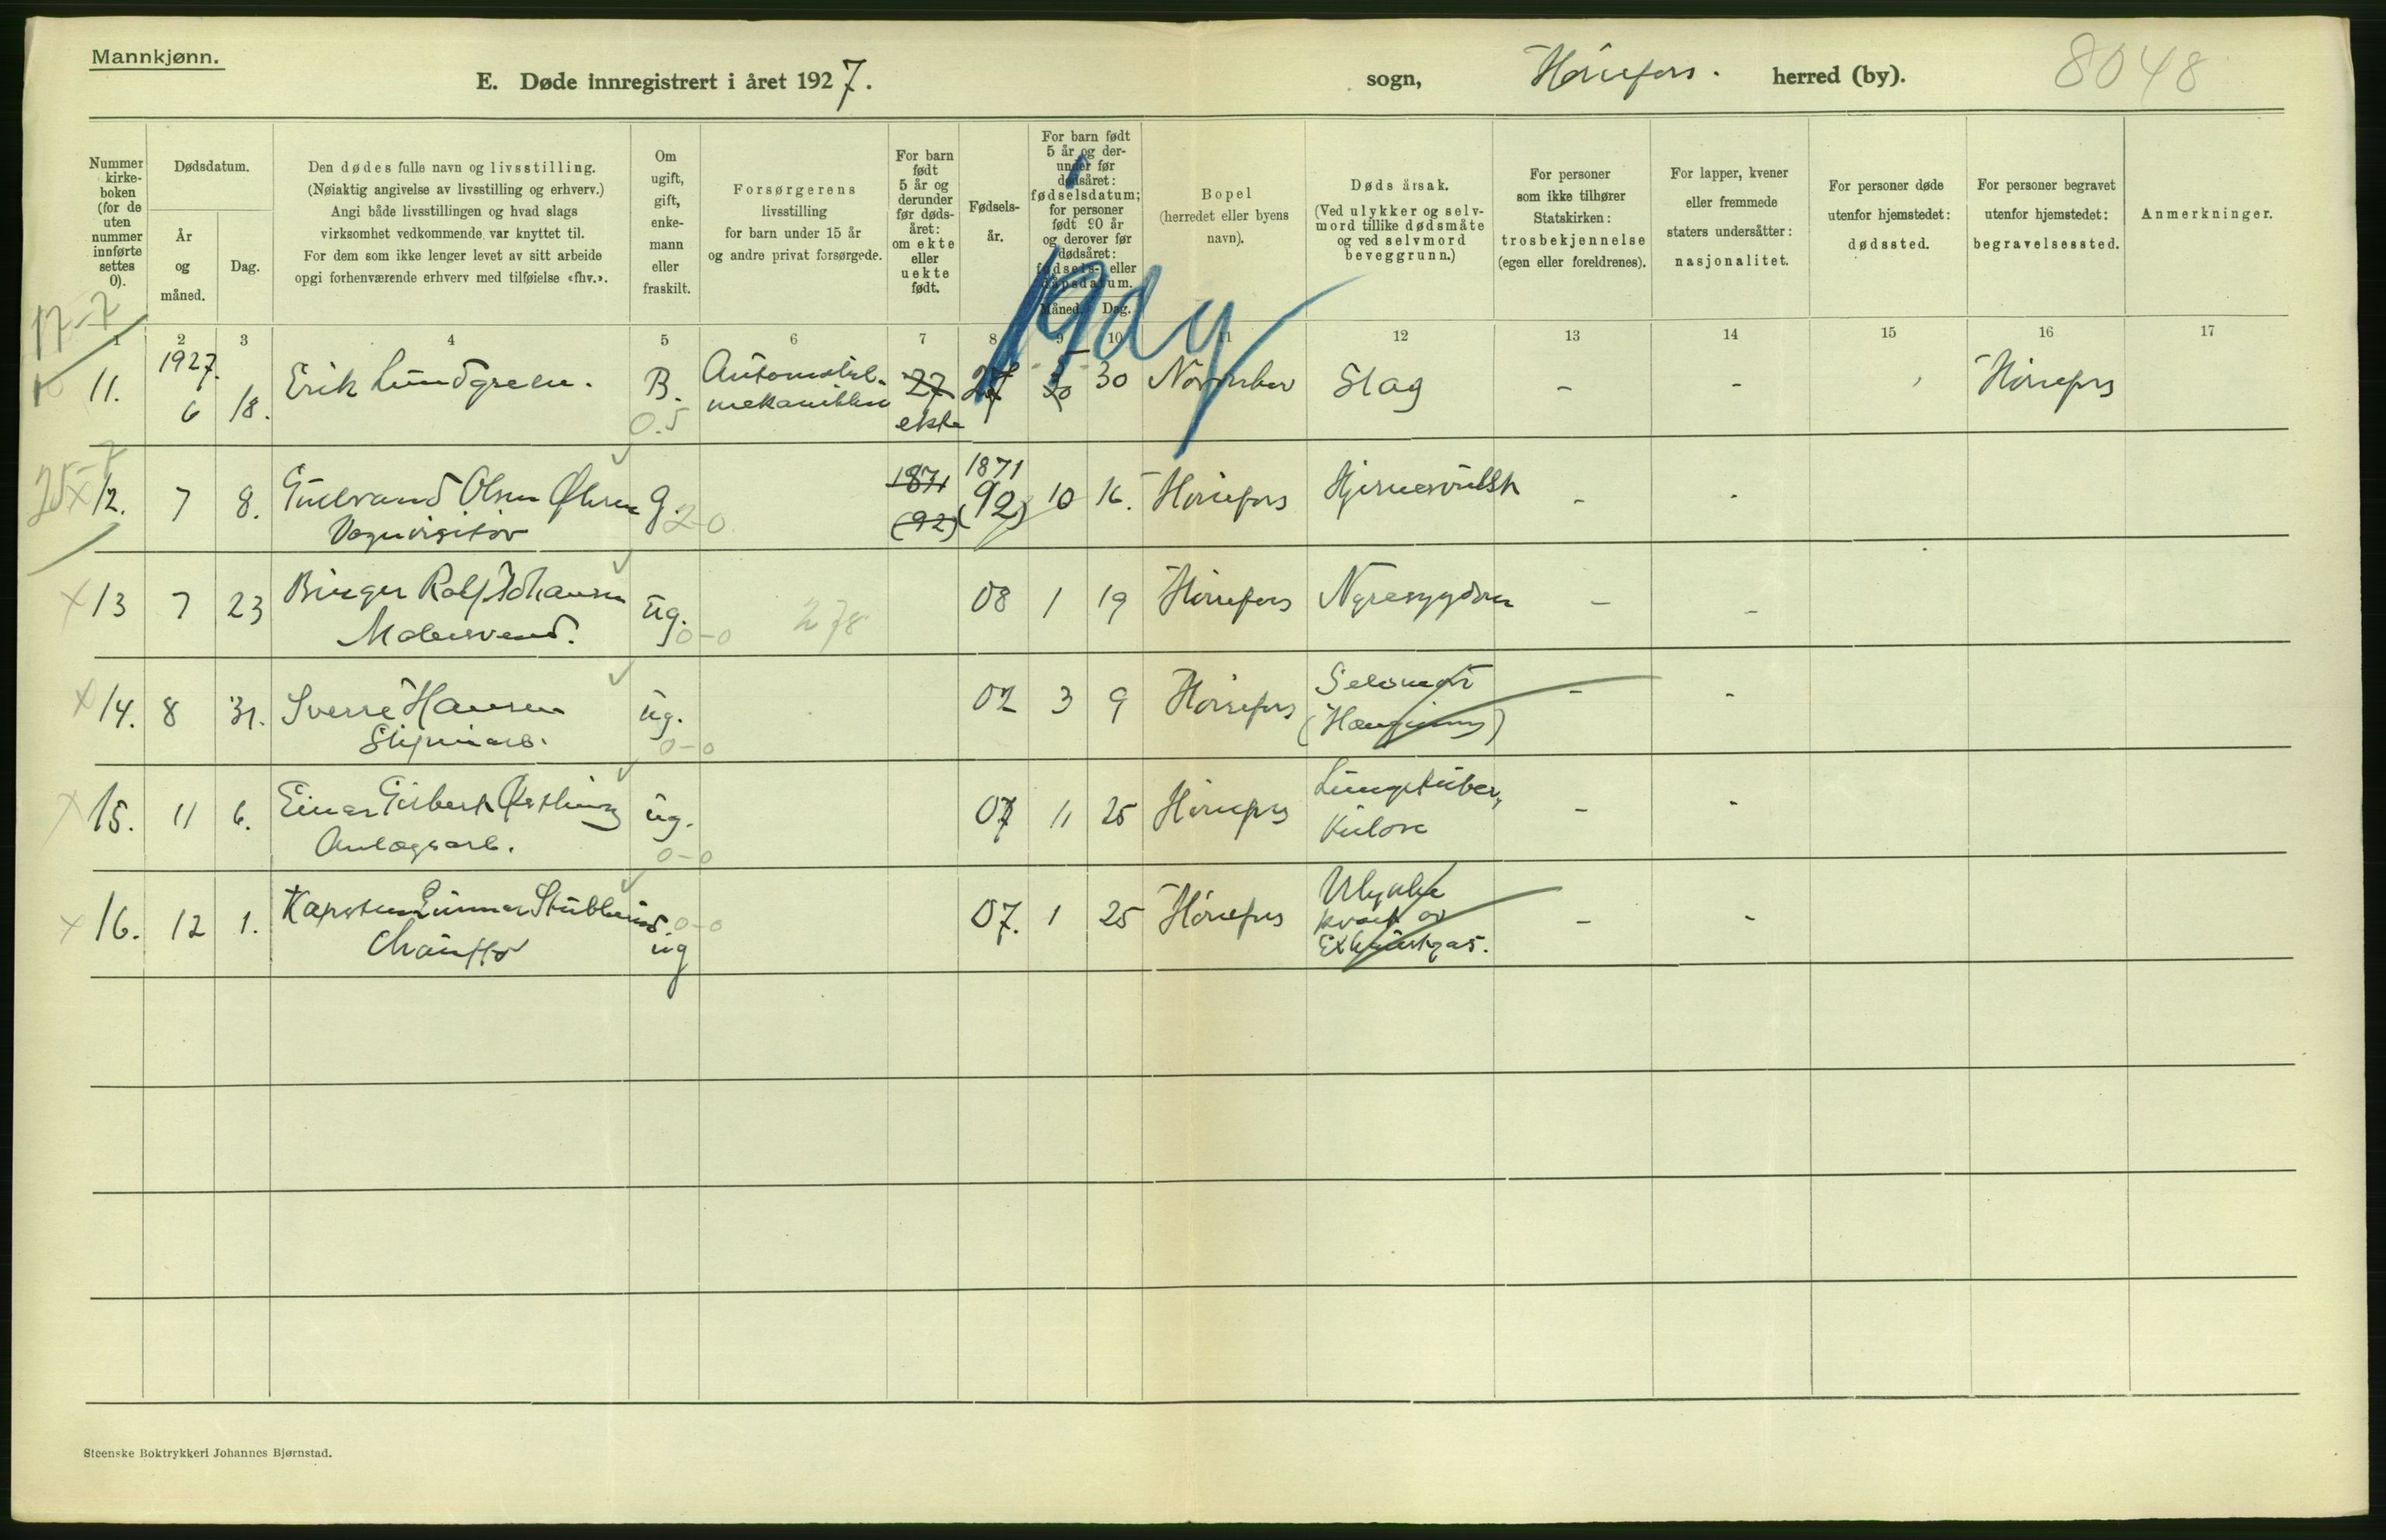 Mannkjønn.
E. Døde innregistrert i året 1927.
sogn, Hønefoss. herred (by).
8048
Nummer
kirke-
boken
(for de
uten
nummer
innførte
settes
0).
Dødsdatum.
År
og
måned.
Dag.
Den dødes fulle navn og livsstilling.
(Nøiaktig angivelse av livsstilling og erhverv.)
Angi både livsstillingen og hvad slags
virksomhet vedkommende var knyttet til.
For dem som ikke lenger levet av sitt arbeide
opgi forhenværende erhverv med tilføielse «fhv.».
Om
ugift,
gift,
enke-
mann
eller
fraskilt.
Forsørgerens
livsstilling
for barn under 15 år
og andre privat forsørgede.
For barn
født
5 år og
derunder
før døds-
året:
om ekte
eller
uekte
født.
Fødsels-
år.
For barn født
5 år og der-
under før
dødsåret:
fødselsdatum;
for personer
født 90 år
og derover før
dødsåret:
fødsels- eller
dåpsdatum.
Måned. Dag.
Bopel
(herredet eller byens
navn).
Døds årsak.
(Ved ulykker og selv-
mord tillike dødsmåte
og ved selvmord
beveggrunn.)
For personer
som ikke tilhører
Statskirken:
trosbekjennelse
(egen eller foreldrenes).
For lapper, kvener
eller fremmede
staters undersåtter:
nasjonalitet.
For personer døde
utenfor hjemstedet:
dødssted.
For personer begravet
utenfor hjemstedet:
begravelsessted.
Anmerkninger.
17-7
1 2 3 4 5 6 7 8 9 10 11 12 13 14 15 16 17
11. 1927. 6 18. Erik Lundgreen. B. Automobil-
mekanikker 27 ekte 27 5 30 30 Norderhov Slag - - Hønefoss
0.5
25-7
12. 7 8. Gulbrand Olsen g. 1871 (92) 1871 (92) 10 16. Hønefoss Hjernesvulst - -
Vognvisitør 2-0
13 7 23 Birger Rolf Johansen ug. 08 1 19 Hønefoss Nyresygdom - -
Malersvend. 0-0 278
14. 8 31. Sverre Hansen ug. 02 3 9 Hønefoss Selvmord - -
Sliperiarb. 0-0 (Hængning)
15. 11 6. Einar Østling ug. 07 11 25 Hønefoss Lungetuber,
Anlægsarb. 0-0 kulose - -
16. 12 1. Gunnar Stubberud. 0-0 07. 1 25 Hønefoss Ulykke
Chauffør ug kvalt av - -
Exhaustgas.
Steenske Boktrykkeri Johannes Bjørnstad.